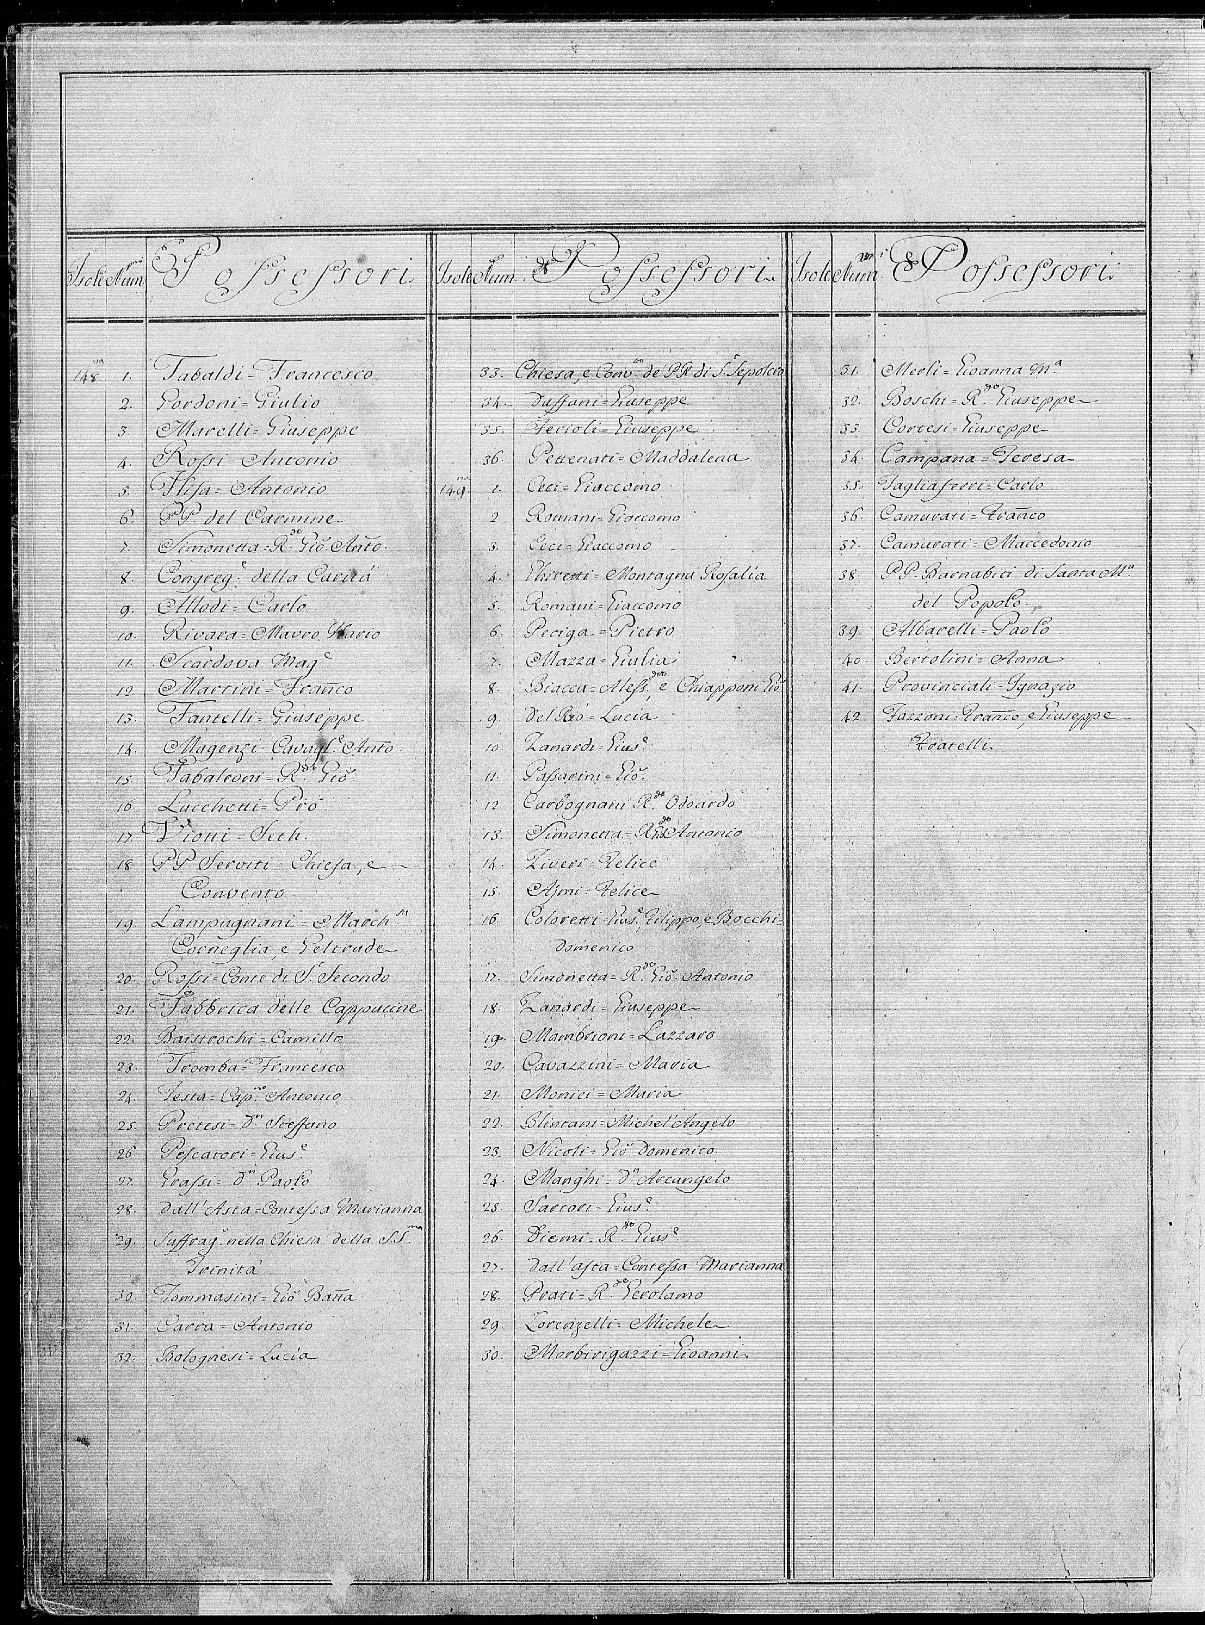 Isole Num.ri Possessori
148 1. Tabaldi = Francesco
2. Gordoni = Giulio
3. Marelli = Giuseppe
4. Rossi = Antonio
5. Antonio
6. PP del Carmine
7. Simonetta = R.do Gio: Anto.
8. Congreg.e della Carità
9. Modi = Carlo
10. Rivara = Mauro Ilario
11. Scardova Mag.e
12. Martini = Franco
13. Fantelli = Giuseppe
14. Magenzi Cavagl.e Anto
15. Tabaleoni = R.do Gio:
16. Lucchetti = Pro
17. Viotti = Seth
18. PP Serviti = Chiesa, e
Convento
19. Lampugnani = March.si
Corneglia, e Geltrude
20. Rossi = Conte di S. Secondo
21. Fabbrica delle Cappucine
22. Baistrochi = Camillo
23. Tromba = Francesco
24. Testa = Cap.no Antonio
25. Pretesi = D.n Steffano
26. Pescatori = Gius.e
27. Grassi = D.n Paolo
28. Dall'Asta = Contessa Marianna
29. Suffrag. nella Chiesa della S.S.ma
Trinità
30. Tommasini = Gio: Batta
31. Carra = Antonio
32. Bolognesi = Lucia
Isole Num. Possessori
33. Chiesa, e Conv.to de PP. di S. Sepolcro
34. Daffani = Giuseppe
35. Aerioli = Giuseppe
36. Pettenati = Maddalena
149 1. Ceci = Giaccomo
2. Romani = Giaccomo
3. Ceci = Giaccomo
4. Ghiretti = Montagna Rosalia
5. Romani = Giaccomo
6. Peciga = Pietro
7. Mazza = Giulia
8. Biacca = Aless.dro e Chiapponi Gio:
9. Del Rio = Lucia
10. Zanardi = Gius.e
11. Passarini = Gio:
12. Carbognani R.do Odoardo
13. Simonetta = R.do Antonio
14. Ziveri = Felice
15. Ajmi = Felice
16. Coloretti = Gius.e Filippo, e Bocchi =
Domenico
17. Simonetta = R.do Gio: Antonio
18. Zanardi = Giuseppe
19. Mambrioni = Lazzaro
20. Cavazzini = Maria
21. Monici = Maria
22. Glintani = Michel'Angelo
23. Nicoli = Gio: Domenico
24. Manghi = D.n Arcangelo
25. Sartori = Gius.e
26. Diemi = R.do Gius.e
27. Dall'asta = Contessa Marianna
28. Prati = R.do Gerolamo
29. Torcazelli = Michele
30. Morbirigazzi = Gioanni
Isole Num.ri Possessori
31. Merli = Gioanna M.a
32. Boschi = R.do Giuseppe
33. Cortesi = Giuseppe
34. Campana = Teresa
35. Tagliaferri = Carlo
36. Camurati = Franco
37. Camurati = Maccedonio
38. PP. Barnabiti di Santa M.a
del Popolo
39. Albarelli = Paolo
40. Bertolini = Anna
41. Provinciali = Ignazio
42. Fazzoni Franco, e Giuseppe
Fratelli